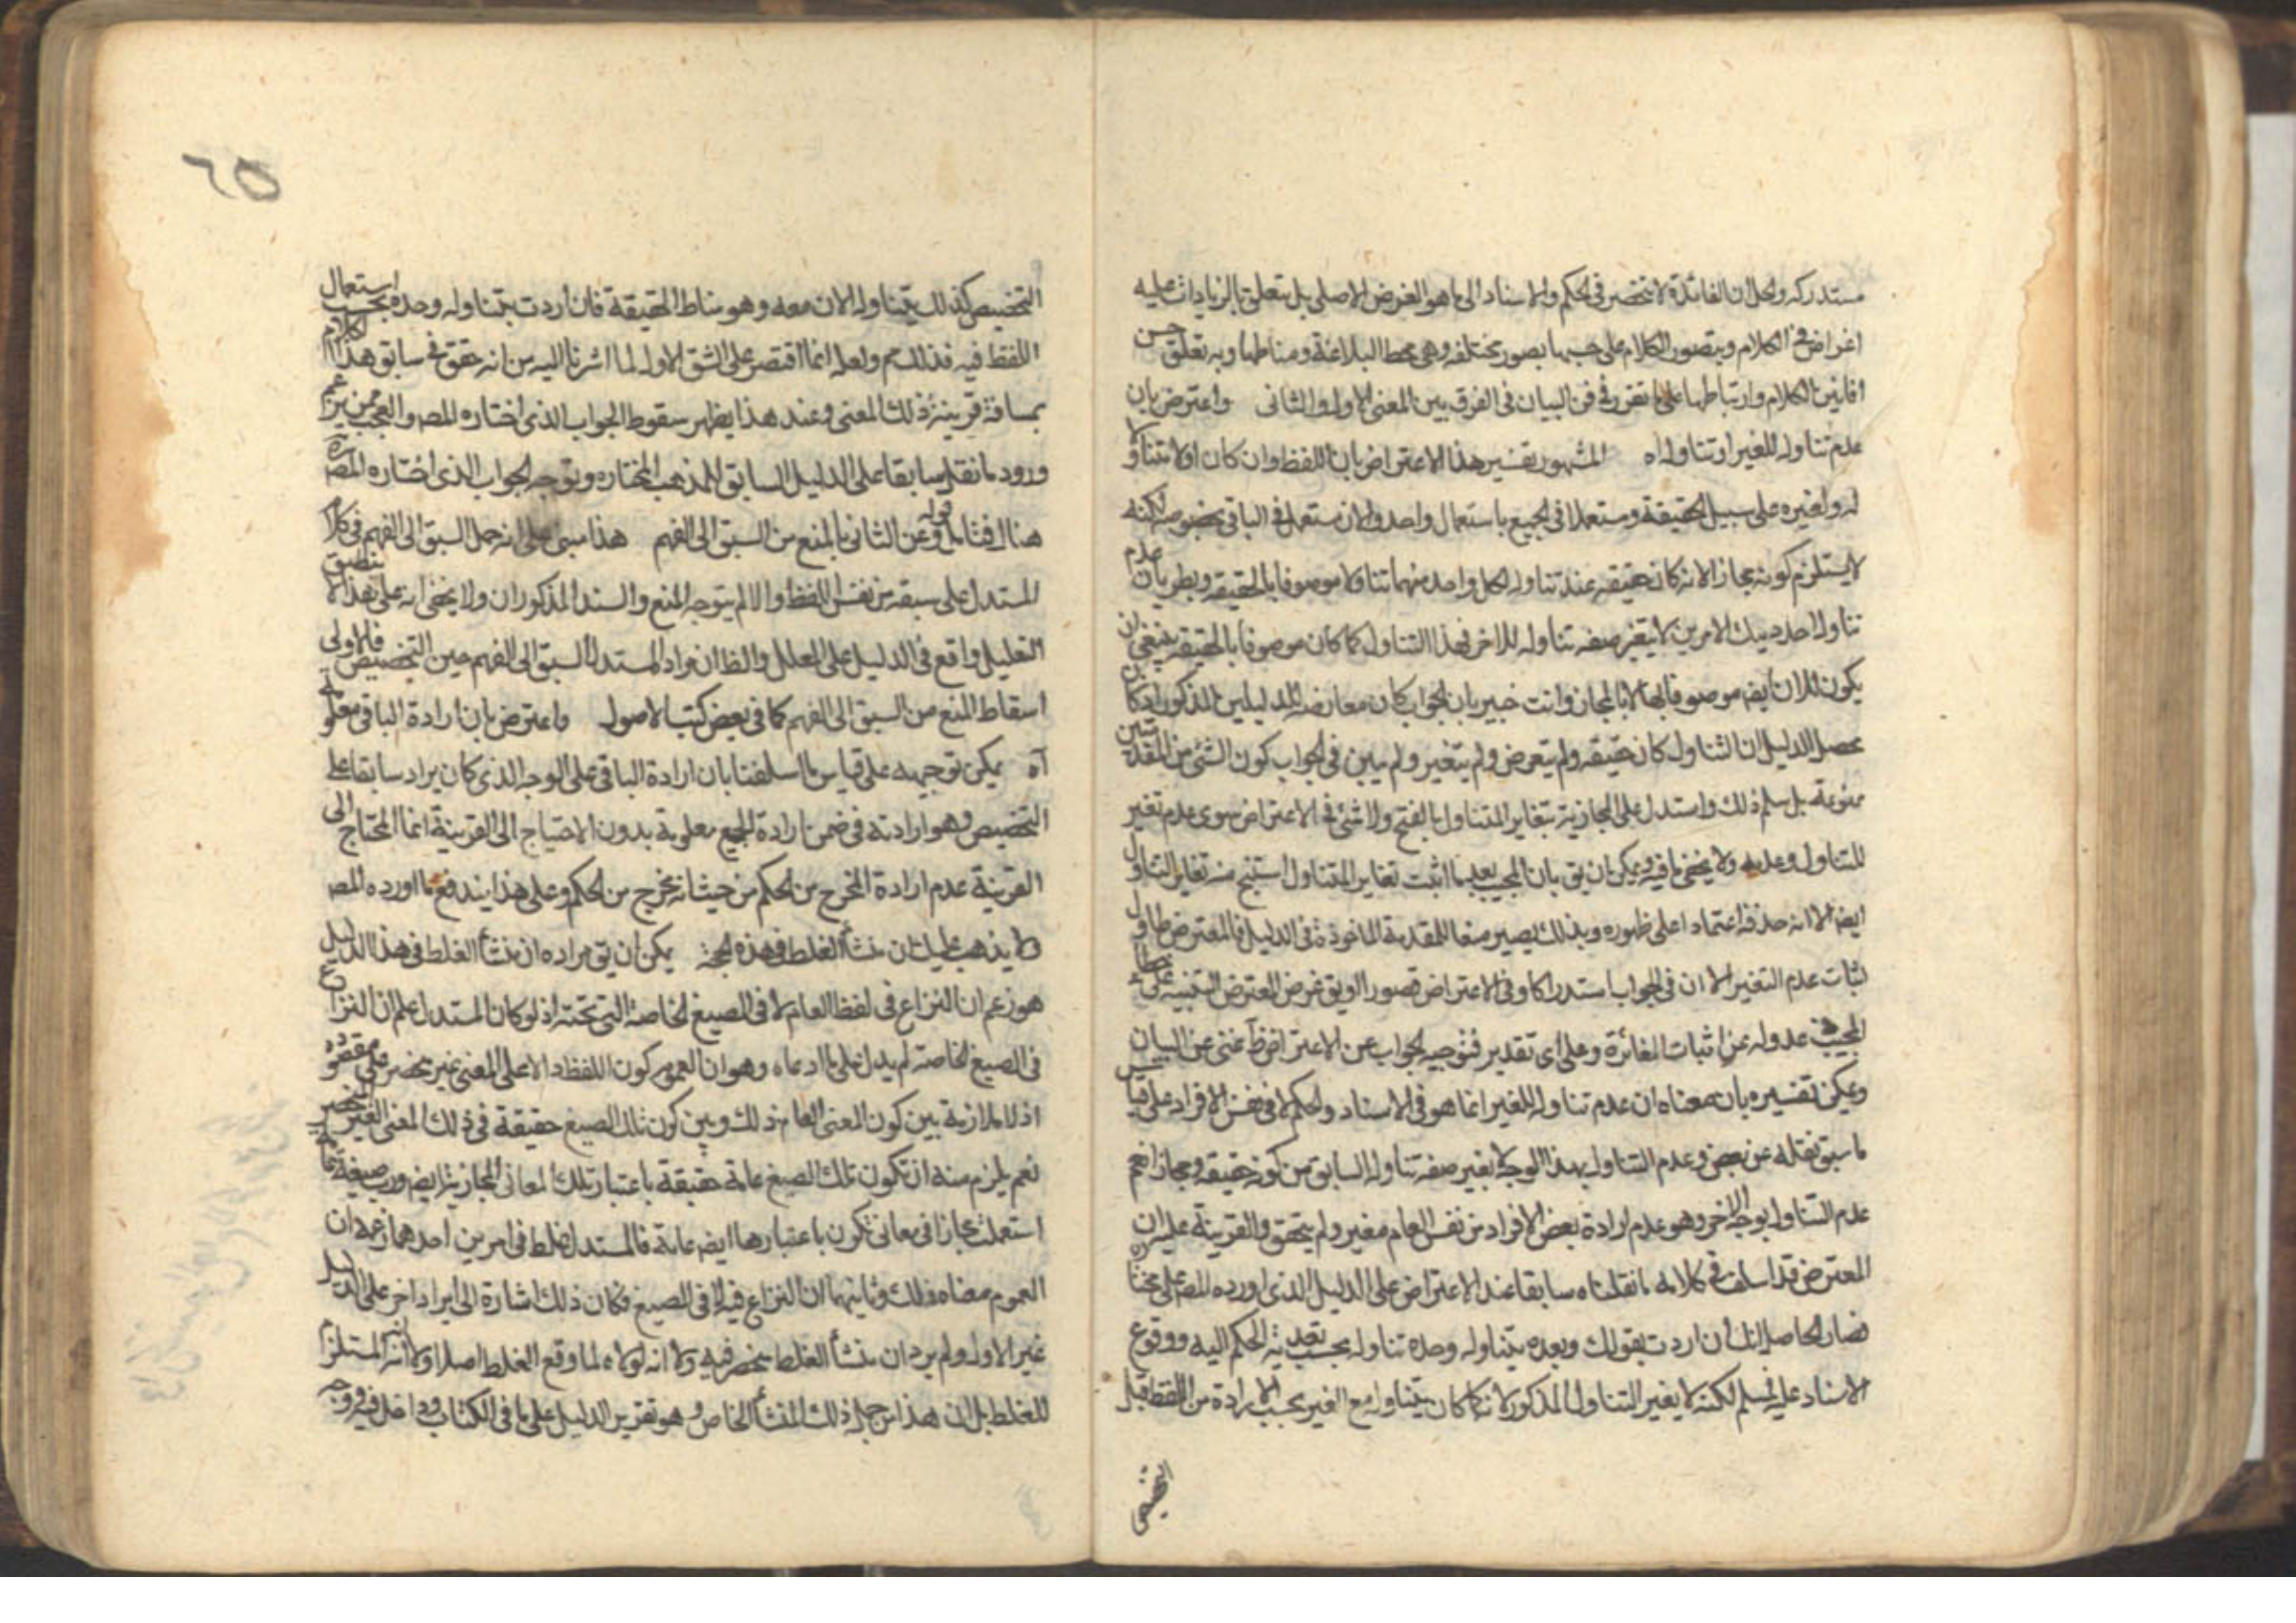 مستدركه والحل ان الفائدة لا تنحصر فى الحكم والاسناد الى ما هو الغرض الاصلى بل يتعلق بالزيادات عليه
اغراض فى الكلام ويتصور الكلام على حسبها بصور مختلفه وهى محط البلاغة ومناطها وبه تعلق حسن
افانين الكلام وارتباطها على ما تقرر فى فن البيان فى الفرق بين المعنى الاول والثانى واعترض بان
عدم تناوله للغير او تناوله اه المشهور تفسير هذا الاعتراض بان اللفظ وان كان اولا متناولا
له ولغيره على سبيل الحقيقة ومستعملا فى الجميع باستعمال واحد والان مستعمل فى الباقى بخصوصه لكنه
لا يستلزم كونه مجازا لانه كان حقيقه عند تناوله لكل واحد منهما تناولا موصوفا بالحقيقه وبطريان عدم
تناوله احد ذينك الامرين لا يتغير صفه تناوله للاخر فهذا التناول كما كان موصوفا بالحقيقه ينبغى ان
يكون الان ايضا موصوفا بها لا بالمجاز وانت خبير بان الجواب كان معارضة للدليلين المذكورين اذ كان
محصل الدليل ان التناول كان حقيقه ولم يتعرض ولم يتغير ولم يبين فى الجواب كون الشئ من المقدمتين
ممنوعة بل سلم ذلك واستدل على المجازية بتغاير المتناول بالفتح ولا شئ فى الاعتراض سوى عدم تغير
المتناول وعدمه ولا يخفى ما فيه ويمكن ان يق بان المجيب بعد ما اثبت تغاير المتناول استنتج منه تغاير التناول
ايضا الا انه حذفه اعتمادا على ظهوره وبذلك يصير منعا للمقدمة المأخوذة فى الدليل فالمعترض حاول
اثبات عدم التغير الا ان فى الجواب استدراكا وفى الاعتراض قصورا او يق غرض المعترض التنبيه على خطأ
المجيب فى عدوله عن اثبات المغائرة وعلى اى تقدير فتوجيه الجواب عن الاعتراض ظ غنى عن البيان
ويمكن تفسيره بان معناه ان عدم تناوله للغير انما هو فى الاسناد والحكم لا فى نفس الافراد على قياس
ما سبق نقله عن بعض وعدم التناول بهذا الوجه لا يغير صفه تناوله السابق من كونه حقيقه ومجازا نعم
عدم التناول بوجه اخر وهو عدم ارادة بعض الافراد من نفس العام مغير ولم يتحقق والقرينة عليه ان
المعترض قد اسلف فى كلامه ما نقلناه سابقا عند الاعتراض على الدليل الذى اورده المص على مختاره
فصار الحاصل انك ان اردت بقولك وبعده يتناوله وحده تناوله بحسب تعدية الحكم اليه ووقوع
الاسناد عليه فمسلم لكنه لا يغير التناول المذكور لانه كما كان يتناوله مع الغير بحسب الارادة من اللفظ قبل
التخصيص
٦٥
التخصيص كذلك يتناوله الان معه وهو مناط الحقيقة فان اردت بتناوله وحده بحسب استعمال
اللفظ فيه فذلك مم ولعله انما اقتصر على الشق الاول لما اشرنا اليه من انه حقق فى سابق هذا الكلام
بمسافة قريبة ذلك المعنى وعند هذا يظهر سقوط الجواب الذى اختاره المص والعجب ممن يزعم
ورود ما نقله سابقا على الدليل السابق للمذهب المختار ويوجه الجواب الذى اختاره المص ره
هنا فتامل قوله وعن الثانى بالمنع من السبق الى الفهم هذا مبنى على انه حمل السبق الى الفهم فى كلام
المستدل على سبقه من نفس اللفظ والا لم يتوجه المنع والسند المذكوران ولا يخفى انه على هذا لا ينطبق
التعليل واقع فى الدليل على المعلل والظ ان مراد المستدل السبق الى الفهم حين التخصيص فالاولى
اسقاط المنع من السبق الى الفهم كما فى بعض كتب الاصول واعترض بان ارادة الباقى معلومة
آه يمكن توجيهه على قياس ما اسلفنا بان ارادة الباقى على الوجه الذى كان يراد سابقا على
التخصيص وهو ارادته فى ضمن ارادة الجميع معلومة بدون الاحتياج الى القرينة انما المحتاج الى
القرينة عدم ارادة المخرج من الحكم من حيث انه يخرج من الحكم وعلى هذا يندفع ما اورده المص
ولا يذهب عليك ان منشأ الغلط فى هذه الحجة يمكن ان يق مراده ان منشأ الغلط فى هذا الدليل
هو زعم ان النزاع فى لفظ العام لا فى الصيغ الخاصة التى تحته اذ لو كان المستدل علم ان النزاع
فى الصيغ الخاصة لم يدل على ما ادعاه وهو ان العموم كون اللفظ دالا على المعنى غير منحصر على مقصوده
اذ لا ملازمة بين كون المعنى العام ذلك وبين كون تلك الصيغ حقيقة فى ذلك المعنى الغير المنحصر
نعم يلزم منه ان تكون تلك الصيغ عامة حقيقة باعتبار تلك المعانى المجازية ايضا ورب صيغة عامة
استعملت مجازا فى معانى تكون باعتبارها ايضا عامة فالمستدل غلط فى امرين احدهما زعمه ان
العموم معناه ذلك وثانيهما ان النزاع فيه لا فى الصيغ فكان ذلك اشارة الى ايراد اخر على الدليل
غير الاول ولم يرد ان منشأ الغلط منحصر فيه ولا انه لولاه لما وقع الغلط اصلا ولا انه المستلزم
للغلط بل ان هذا من جملة ذلك المنشأ الخاص وهو تقرير الدليل على ما فى الكتاب وداخل فيه وجه